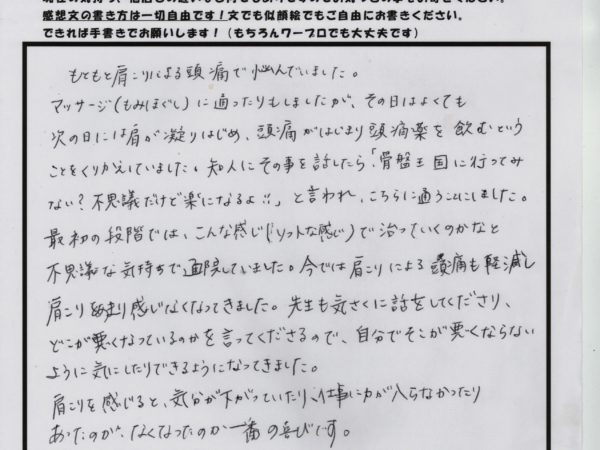 感想文の書き方は一切自由です!文でも似顔絵でもご自由にお書きください。
できれば手書きでお願いします!(もちろんワープロでも大丈夫です)
もともと肩こりによる頭痛で悩んでいました。
マッサージ(もみほぐし)に通ったりもしましたが、その日はよくても
次の日には肩が凝りはじめ、頭痛がはじまり頭痛薬を飲むという
ことをくりかえしていました。知人にその事を話したら「骨盤王国に行ってみ
ない?不思議だけど楽になるよ!!」と言われ、こちらに通うことにしました。
最初の段階では、こんな感じ(ソフトな感じ)で治っていくのかなと
不思議な気持ちで通院していました。今では肩こりによる頭痛も軽減し
肩こりもあまり感じなくなってきました。先生も気さくに話をしてくださり、
どこが悪くなっているのかを言ってくださるので、自分でそこが悪くならない
ように気にしたりできるようになってきました。
肩こりを感じると、気分が下がっていたり、仕事に力が入らなかったり
あったのが、なくなったのが一番の喜びです。